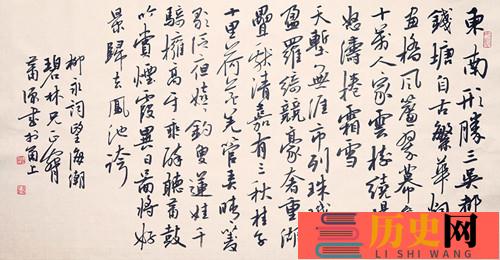 東南形勝三吳都
錢塘自古繁華烟
畫橋風簾翠幕
十萬人家雲樹繞堤
怒濤捲霜雪
天塹無涯市列珠
盈羅綺競豪奢重湖
疊巘清嘉有三秋桂子
十里荷花羌管弄晴菱
歌泛夜嬉釣叟蓮娃千
騎擁高牙乘醉聽簫鼓
吟賞煙霞異日圖將好
景歸去鳳池誇
柳永詞望海潮
碧林兄正
源書於甬上
历史网
LI SHI WANG